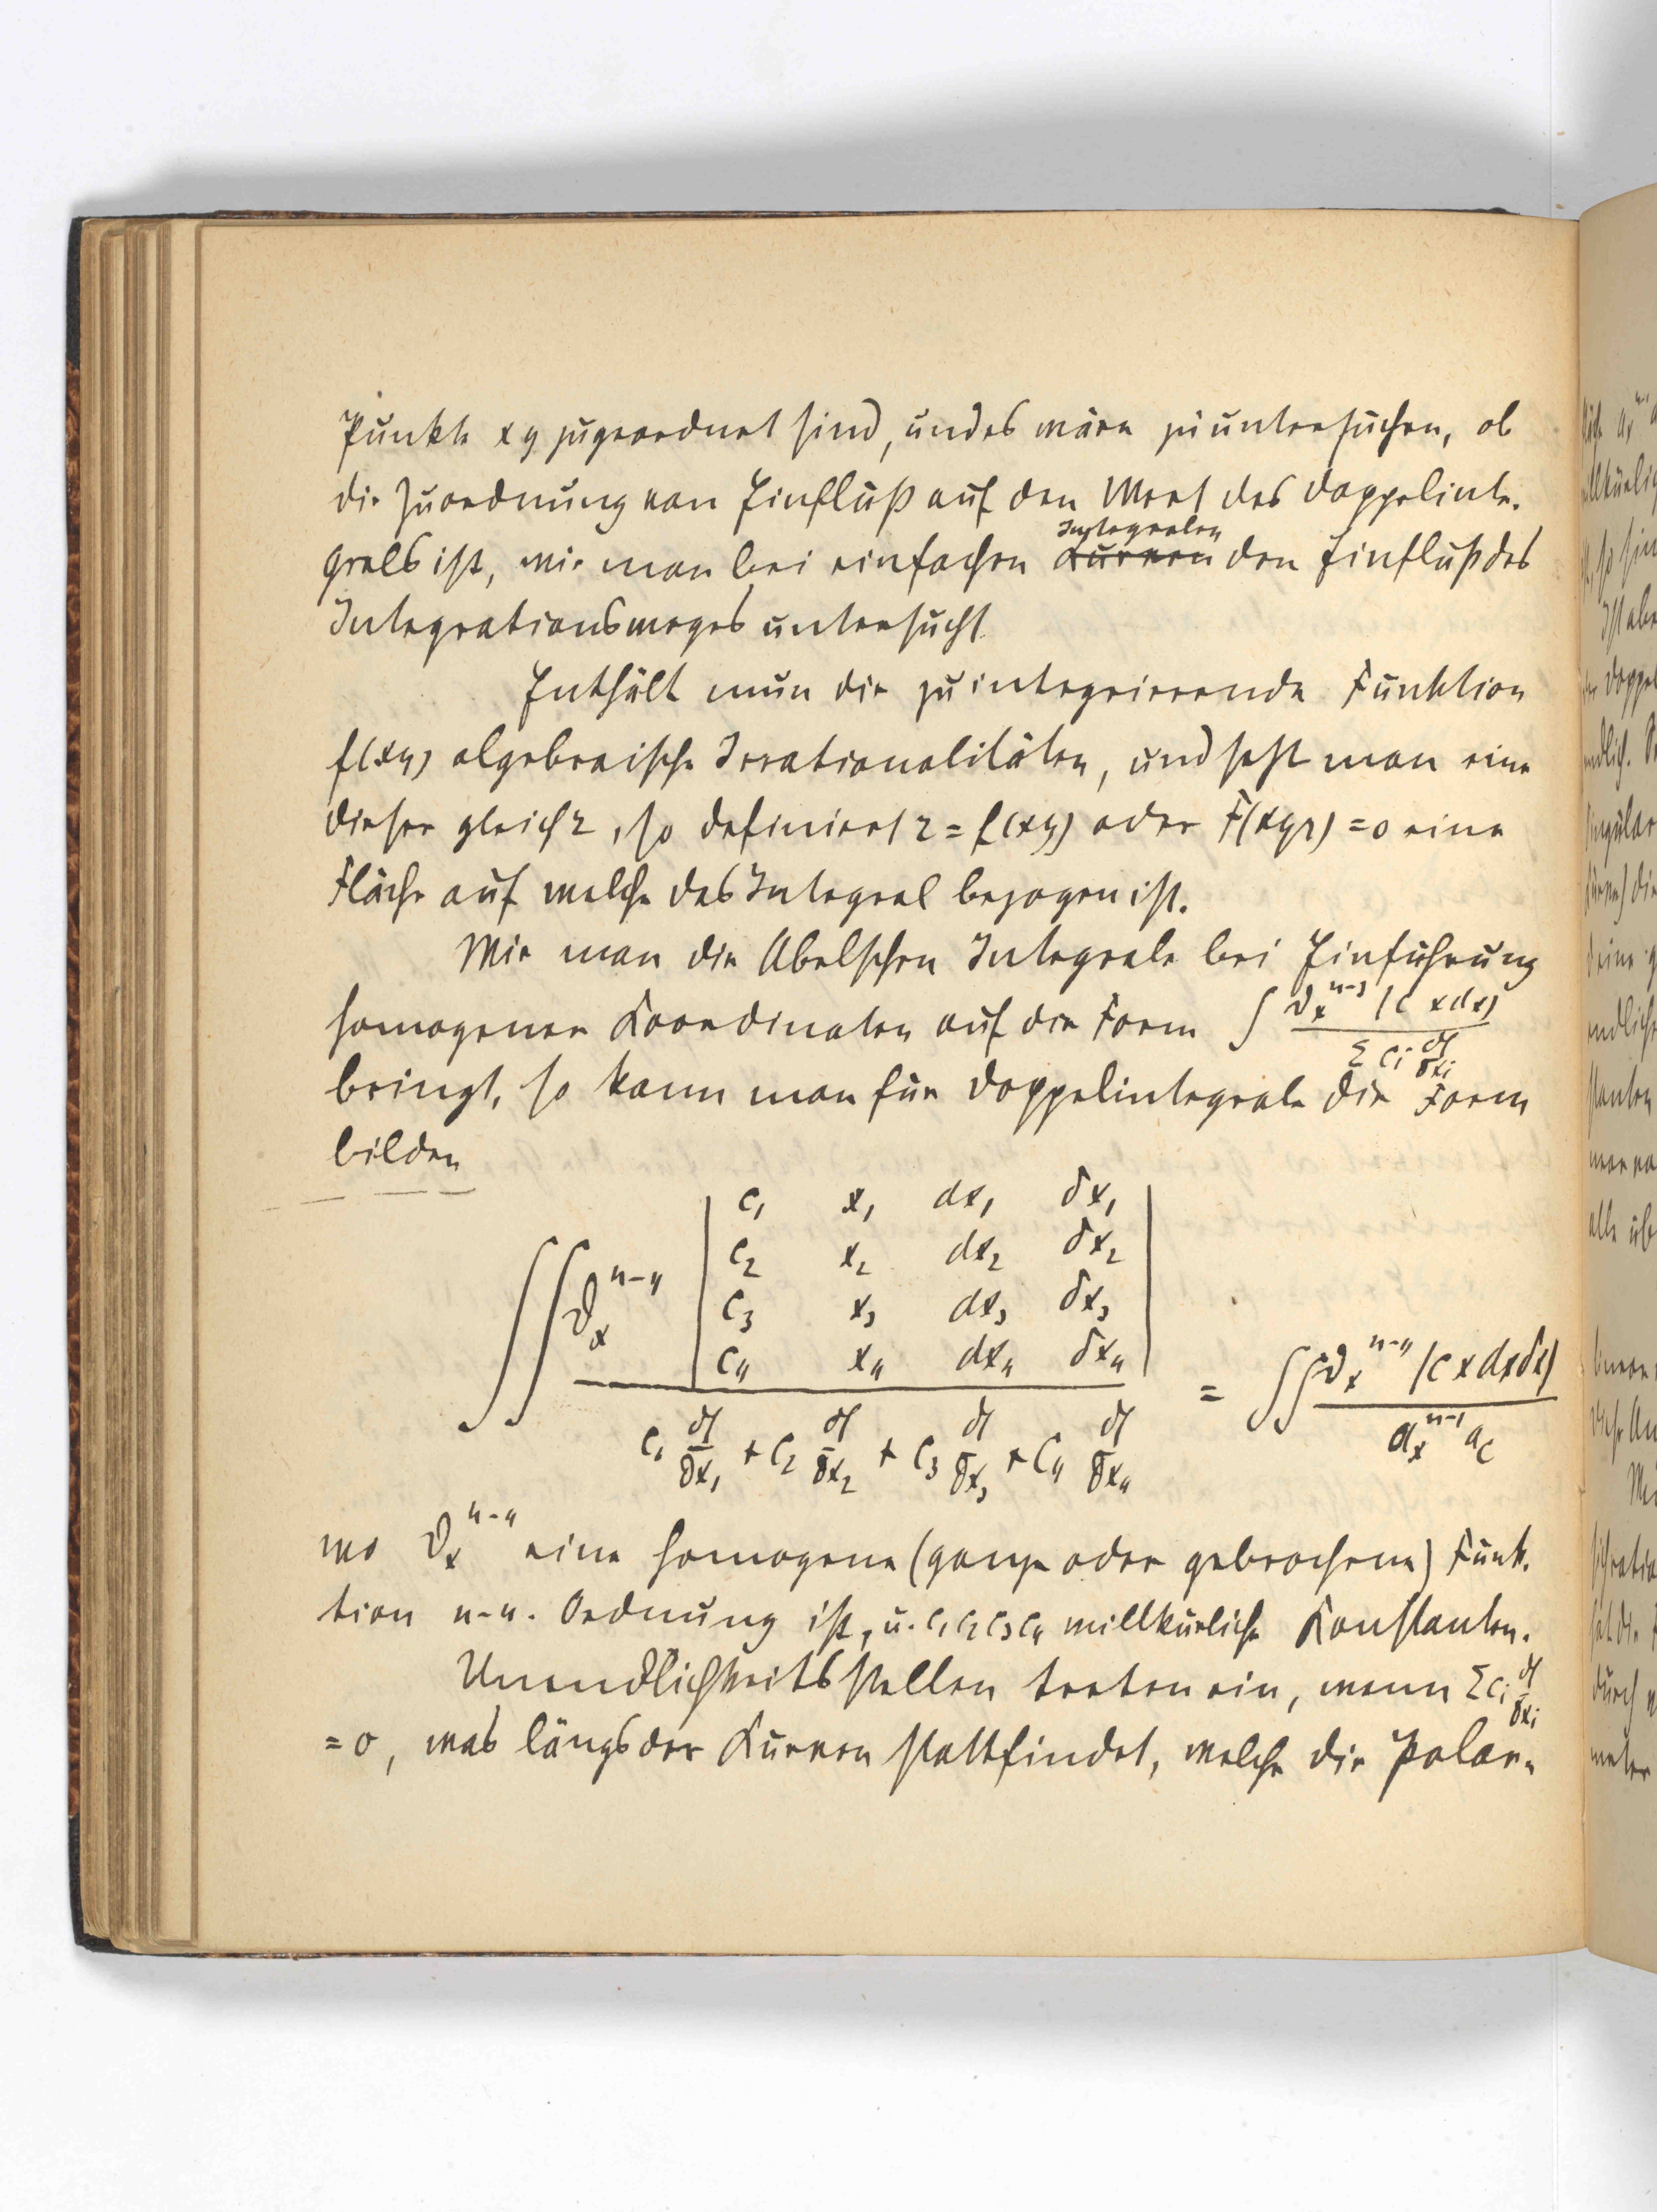 Punkte xy zugeordnet sind, und es wäre zu untersuchen, ob
die Zuordnung von Einfluß auf den Wert des Doppelinte-
grals ist, wie man bei einfachen Kurven Integralen den Einfluß des
Integrationsweges untersucht
Enthält nun die zu integrierende Funktion
f(xy) algebraische Irrationalitäten, und setzt man eine
dieser gleich z, so definiert z = f(xy) oder F(xyz) = 0 eine
Fläche auf welche das Integral bezogen ist.
Wie man die Abelschen Integrale bei Einführung
homogener Koordinaten auf die Form ∫ ϑₓⁿ⁻³ (c x dx) / Σ cᵢ ∂f/∂xᵢ
bringt, so kann man für Doppelintegrale die Form
bilden
∫∫ ϑₓⁿ⁻⁴ | c₁ x₁ dx₁ δx₁
c₂ x₂ dx₂ δx₂
c₃ x₃ dx₃ δx₃
c₄ x₄ dx₄ δx₄ |
/ c₁ ∂f/∂x₁ + c₂ ∂f/∂x₂ + c₃ ∂f/∂x₃ + c₄ ∂f/∂x₄ = ∫∫ ϑₓⁿ⁻⁴ (c x dx δx) / aₓⁿ⁻¹ a_c
wo ϑₓⁿ⁻⁴ eine homogene (ganze oder gebrochene) Funk-
tion n-4. Ordnung ist, u. c₁ c₂ c₃ c₄ willkürliche Konstanten.
Unendlichkeitsstellen treten ein, wenn Σcᵢ ∂f/∂xᵢ
= 0, was längs der Kurven stattfindet, welche die Polar-